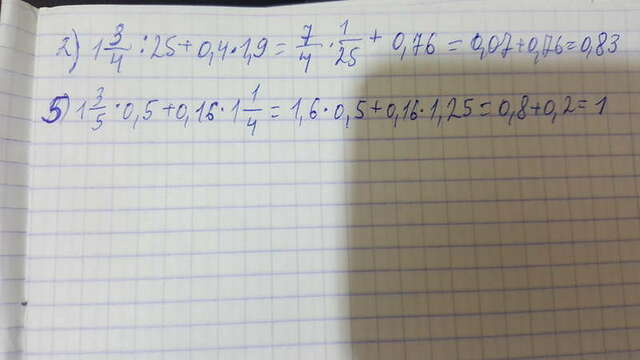 2) 1 3/4 : 25 + 0,4 · 1,9 = 7/4 · 1/25 + 0,76 = 0,07 + 0,76 = 0,83
5) 1 3/5 · 0,5 + 0,16 · 1 1/4 = 1,6 · 0,5 + 0,16 · 1,25 = 0,8 + 0,2 = 1